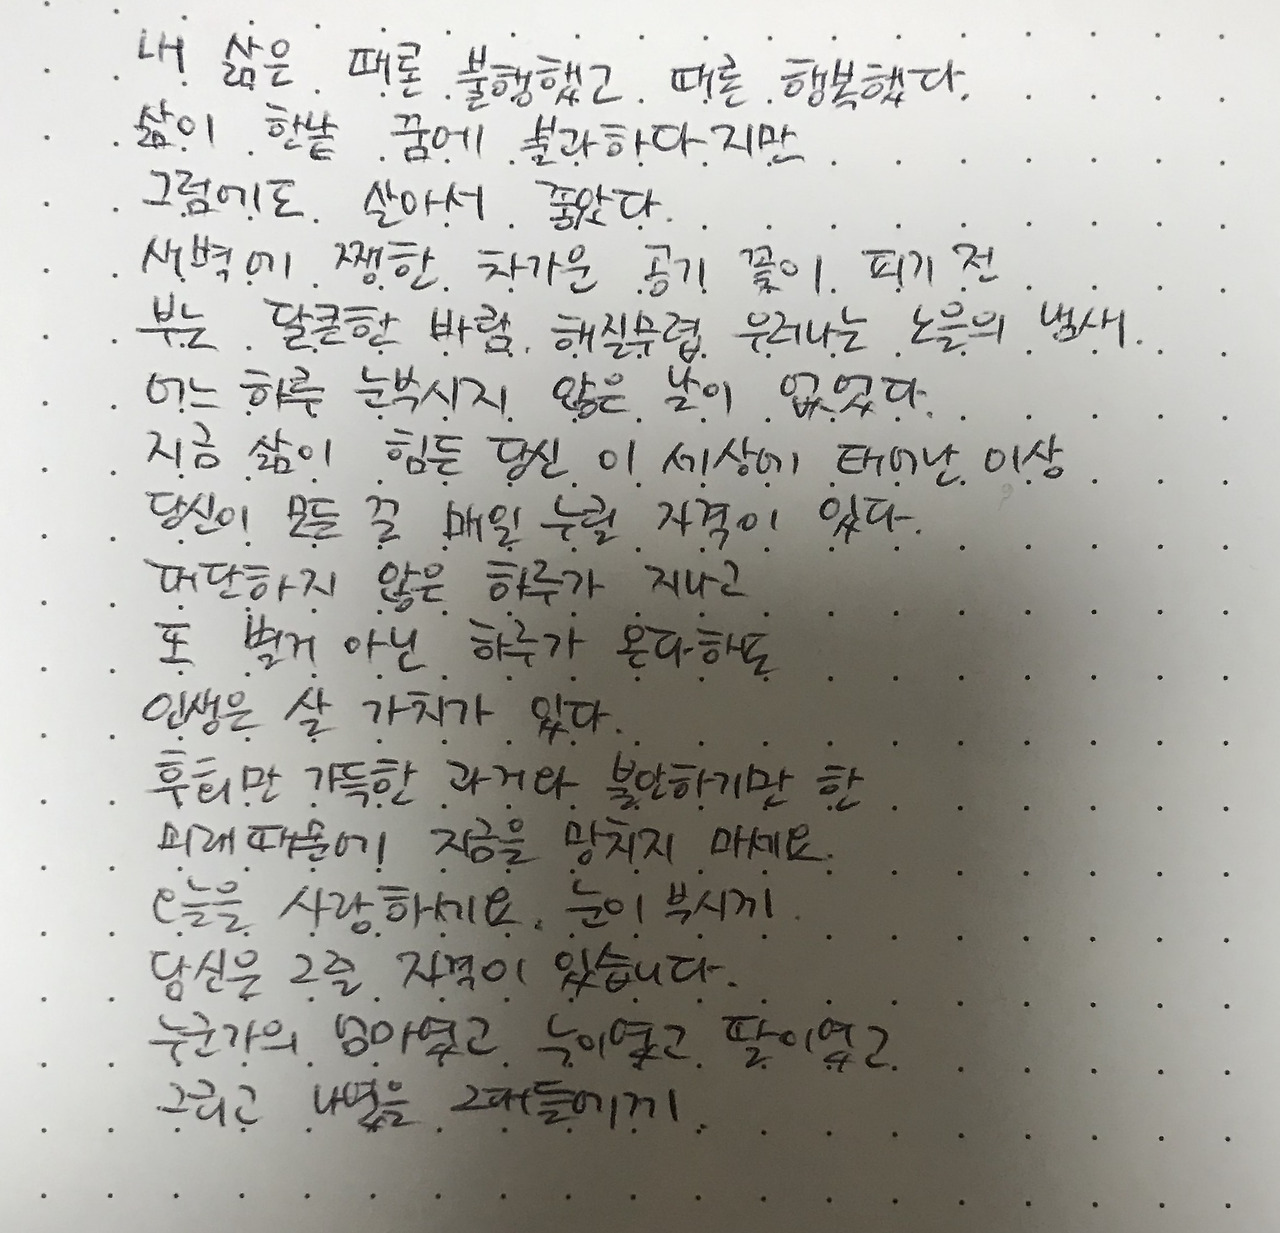 내 삶은 때론 불행했고 때론 행복했다.
삶이 한낱 꿈에 불과하다지만
그럼에도 살아서 좋았다.
새벽에 쨍한 차가운 공기 꽃이 피기 전
부는 달큰한 바람. 해질무렵 우러나는 노을의 냄새.
어느 하루 눈부시지 않은 날이 없었다.
지금 삶이 힘든 당신 이 세상에 태어난 이상
당신이 모든 걸 매일 누릴 자격이 있다.
대단하지 않은 하루가 지나고
또 별거 아닌 하루가 온다하도
인생은 살 가치가 있다.
후회만 가득한 과거와 불안하기만 한
미래때문에 지금을 망치지 마세요.
오늘을 사랑하세요. 눈이 부시게.
당신은 그럴 자격이 있습니다.
누군가의 엄마였고 누이였고 딸이였고
그리고 나였을 그대들에게.